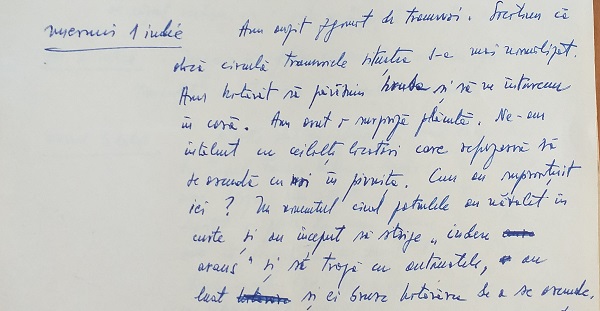 miercuri 1 iulie
Am auzit zgomot de tramvai. Socotim că
dacă circulă tramvaiele situația s-a mai normalizat.
Am hotărât să părăsim și să ne întoarcem
în casă. Am avut o surpriză plăcută. Ne-am
întâlnit cu ceilalți locatari care refuzaseră să
se ascundă cu noi în pivniță. Cum au supraviețuit
ei? În momentul când patrulele au năvălit în
curte și au început să strige "iudeve
araus" și să tragă cu automatele, au
luat și ei brusc hotărârea de a se ascunde.